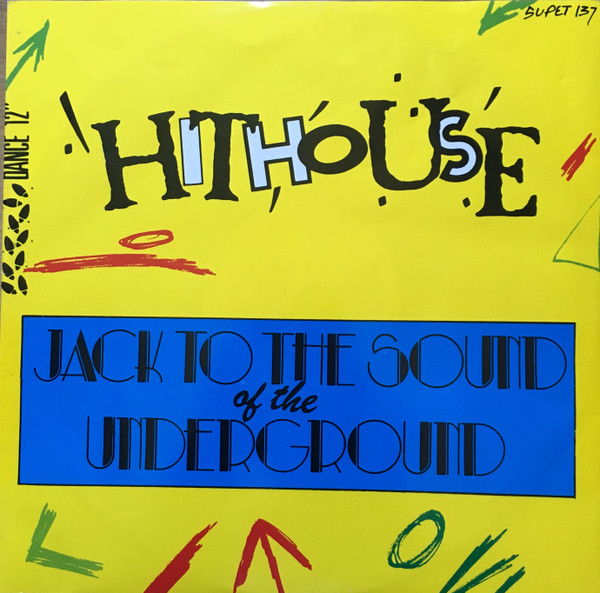 SUPET 137
DANCE 12"
HITHOUSE
JACK TO THE SOUND
of the
UNDERGROUND